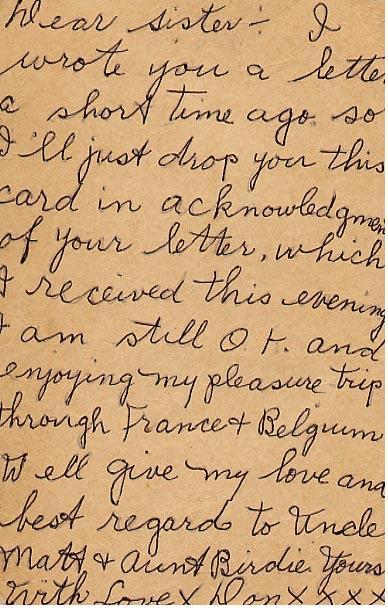 Dear sister:- I
wrote you a letter
a short time ago so
I'll just drop you this
card in acknowledgmen
of your letter, which
I received this evening
I am still O.K. and
enjoying my pleasure trip
through France & Belgium
Well give my love and
best regard to Uncle
Matt & Aunt Birdie. Yours
With Love x Don x x x x